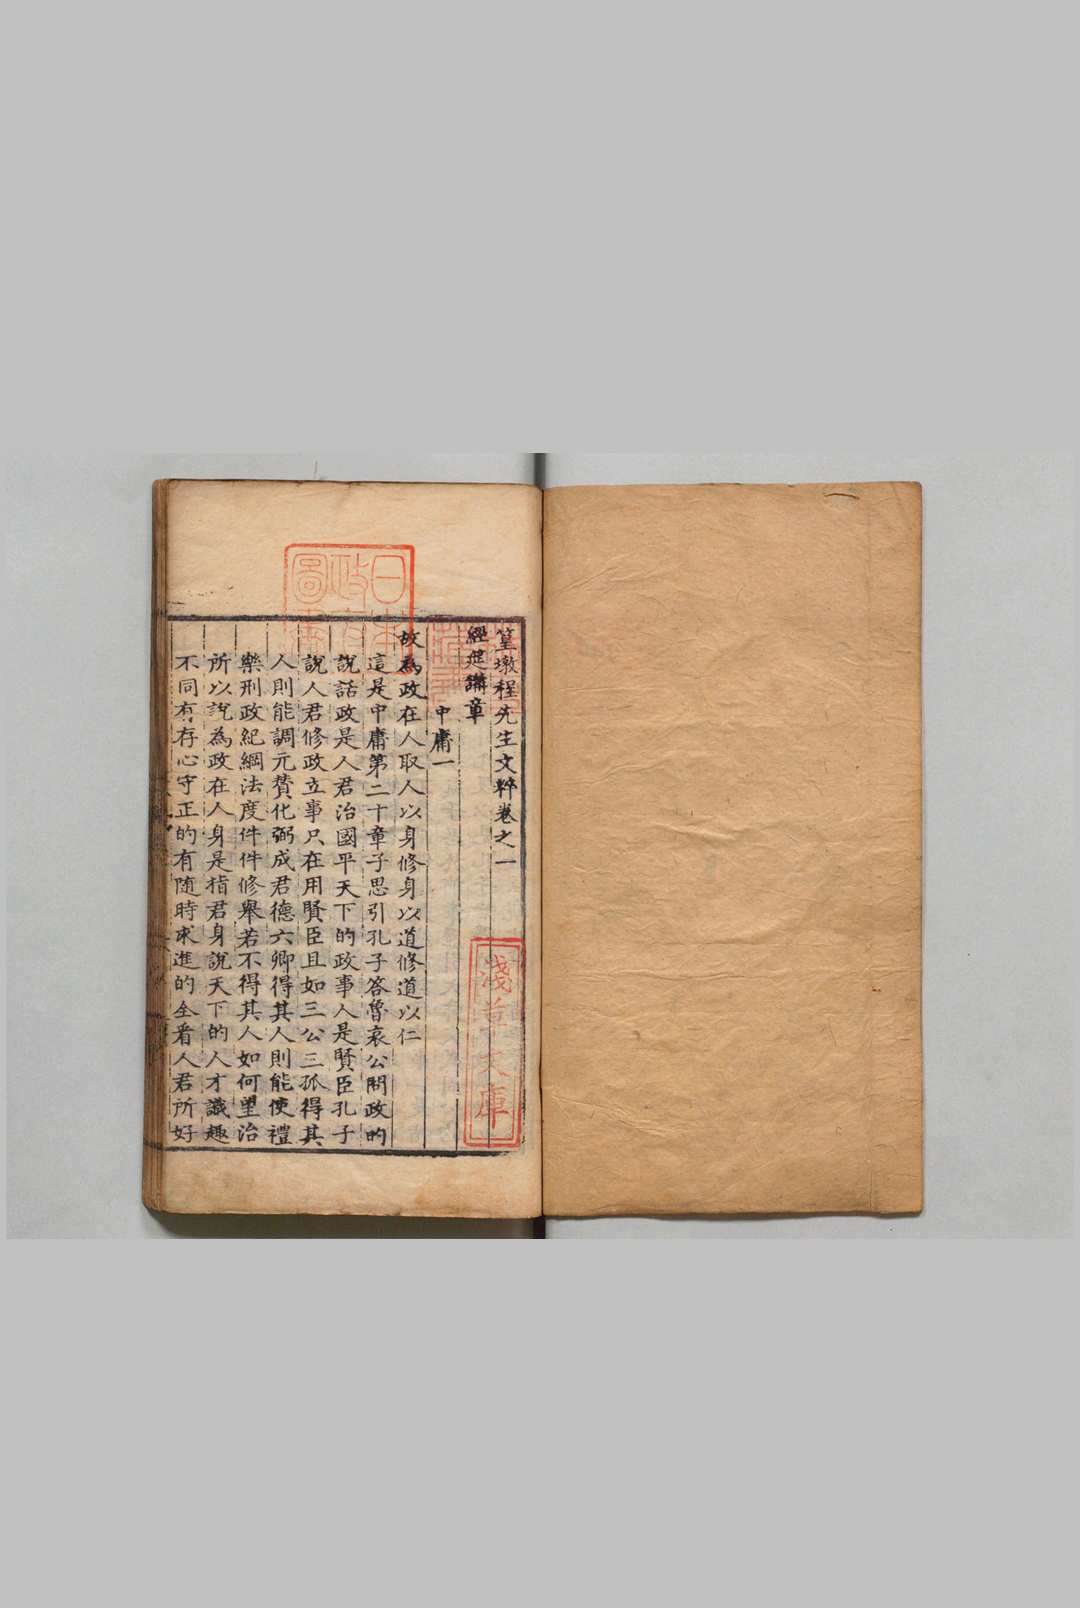 篁墩程先生文粹卷之一
經筵講章
中庸一
故為政在人取人以身修身以道修道以仁
這是中庸第二十章子思引孔子答魯哀公問政的
說話政是人君治國平天下的政事人是賢臣孔子
說人君修政立事只在用賢臣且如三公三孤得其
人則能調元贊化弼成君德六卿得其人則能使禮
樂刑政紀綱法度件件修舉若不得其人如何望治
所以說為政在人身是指君身說天下的人才識趣
不同有存心守正的有隨時求進的全看人君所好
日本政府圖書
淺草文庫